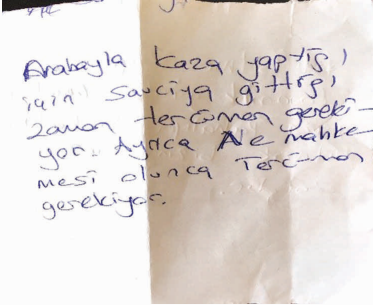 Arabayla kaza yaptığı
için savcıya gittiği
zaman tercüman gereki-
yor. Ayrıca Ne mahke-
mesi olunca Tercüman
gerekiyor.